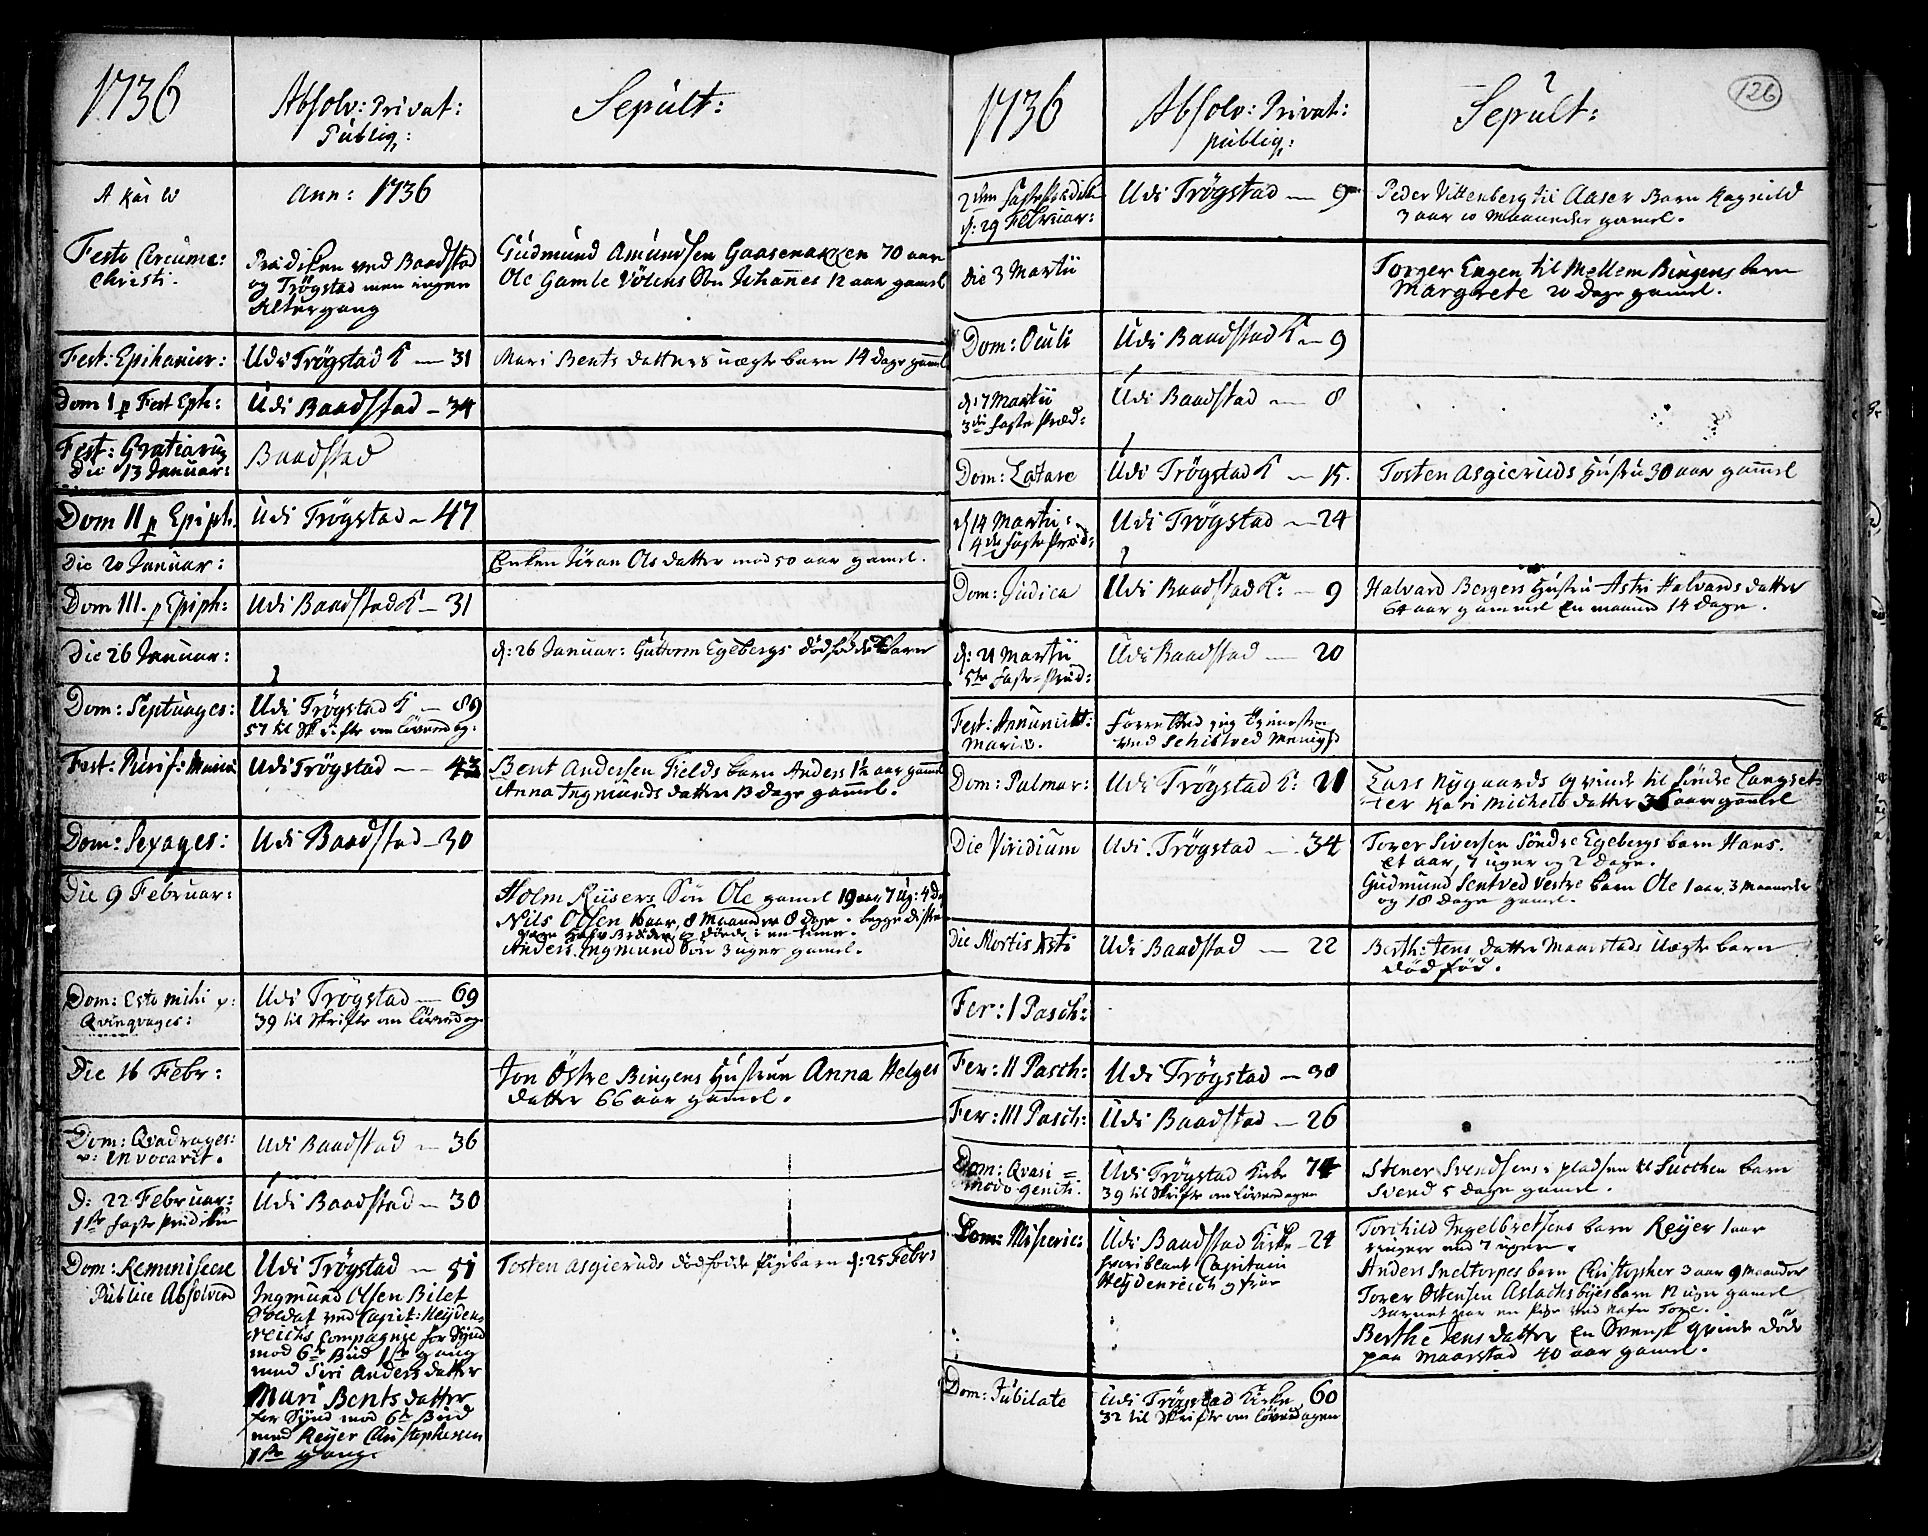 1736
Absolv: Privat:
Publiq:
Sepult:
Ann: 1736
Festo Circumc:
Christi.
Prædiken ved Baadstad
og Trøgstad men ingen
Altergang
Gudmund Amundsen Gaasenakken 70 aar
Ole Gamle Vølens Søn Johannes 12 aar gamel
Fest: Epihanier:
Udi Trøgstad K — 31
Mari Bents datters uægte barn 14 dage gaml
Dom 1 p Fest Eph:
Udi Baadstad — 34
Fest: Gratiarum
Die 13 Januar:
Baadstad
Dom II p Epiph.
Udi Trøgstad — 47
Die 20 Januar:
Enken Jöran Ols datter mod 50 aar gamel.
Dom III. p Epiph:
Udi Baadstad K — 31
Die 26 Januar:
d: 26 Januar: Guttorm Egebergs dödföde Barn
Dom: Septuages:
Udi Trøgstad K — 89
57 til Skrifte om Löverdag:
Fest: Purif: Mariæ
Udi Trøgstad — 43
Bent Andersen Kields barn Anders 1½ aar gamel
Anna Ingmunds datter 13 dage gamel.
Dom: Sexages:
Udi Baadstad — 30
Die 9 Februar:
Holm Riisers Søn Ole gamel 19 aar 7 ug: 4 d
Nils Olsen 16 aar, 8 Maaneder 8 dage. begge disse
vare Halv Brødre, og døde i en time.
Anders Ingmund Søn 3 uger gamel.
Dom: Esto mihi v:
Qvinqvages:
Udi Trøgstad — 69
39 til Skrifte om Löverdag
Die 16 Febr:
Jon Östre Bingens Hustrue Anna Helges
datter 66 aar gamel.
Dom: Qvadrages:
v: invocavit.
Udi Baadstad — 36
D: 22 Februar:
1ste faste Prædiken
Udi Baadstad — 30
Dom: Reminiscere
Publice Absolvend
Udi Trøgstad — 51
Ingmund Olsen Bilet
Soldat ved Capit: Heydens
reichs Compagnie for Synd
mod 6te Bud 1ste gang
med Siri Anders datter
Mari Bents datter
for Synd mod 6te Bud
med Reyer Christophersen
1ste gang.
Tosten Asgieruds dödfödde Pigebarn d: 25 Febr:
1736
Absolv: Privat:
publiq:
Sepult:
126
2den Faste Prædiken
d: 29 Februar:
Udi Trøgstad — 9
Peder Vittenberg til Aaser Barn Ragnild
3 aar 10 Maaneder gamel.
Die 3 Martii
Torger Engen til Mellem Bingens barn
Margrete 20 dage gamel.
Dom: Oculi
Udi Baadstad K — 9
d: 7 Martii
3die faste Præd:
Udi Baadstad — 8
Dom: Lætare
Udi Trøgstad K — 15.
Tosten Asgieruds Hustru 30 aar gamel
d 14 Martii:
4de faste Præd:
Udi Trøgstad — 24
Dom: Judica
Udi Baadstad K: — 9
Halvard Bergers Hustru Astri Halvards datter
64 aar gammel en maaned 14 dage.
d: 21 Martii
5te faste Præd:
Udi Baadstad — 20
Fest: Annunciat:
Mariæ.
Forretted jeg tienesten
ved Schibtved Menighed
Dom: Palmar:
Udi Trøgstad K: 21
Lars Nygaards qvinde til Söndre Langset
ter Kari Michels datter 36 aar gamel
Die Viridium
Udi Trøgstad — 34
Torer Siversen Söndre Egebergs barn Hans.
et aar, 7 uger og 2 dage.
Gudmund Sentved Vestre barn Ole 1 aar 3 Maaneder
og 18 dage gamel.
Die Mortis Xsti
Udi Baadstad — 22
Berthe Jens datter Maarstads Uægte barn
dödföd.
Fer: I Pasch:
Fer: II Pasch:
Udi Trøgstad — 38
Fer: III Pasch:
Udi Baadstad — 26
Dom: Qvasi =
modo geniti.
Udi Trøgstad Kirke 74
39 til Skrifte om Löverdagen
Stener Svendsens i pladsen til barn
Svend 5 dage gamel.
Dom: Miseric:
Udi Baadstad Kirke — 24
hvoriblant Capitain
Heydenreich og frue
Torchild Ingelbretsens barn Reyer 1 aar
ringere end 7 uger.
Anders Sneltorpes barn Christopher 3 aar 9 Maaneder
Torer Ostensen Aslachsbyes barn 12 uger gamel
Barnet var en Pige ved Nafn Tore.
Berthe Jens datter En Svensk qvinde döde
paa Maarstad 40 aar gamel.
Dom: Jubilate
Udi Trøgstad Kirke 60
32 til Skrifte om Löverdagen